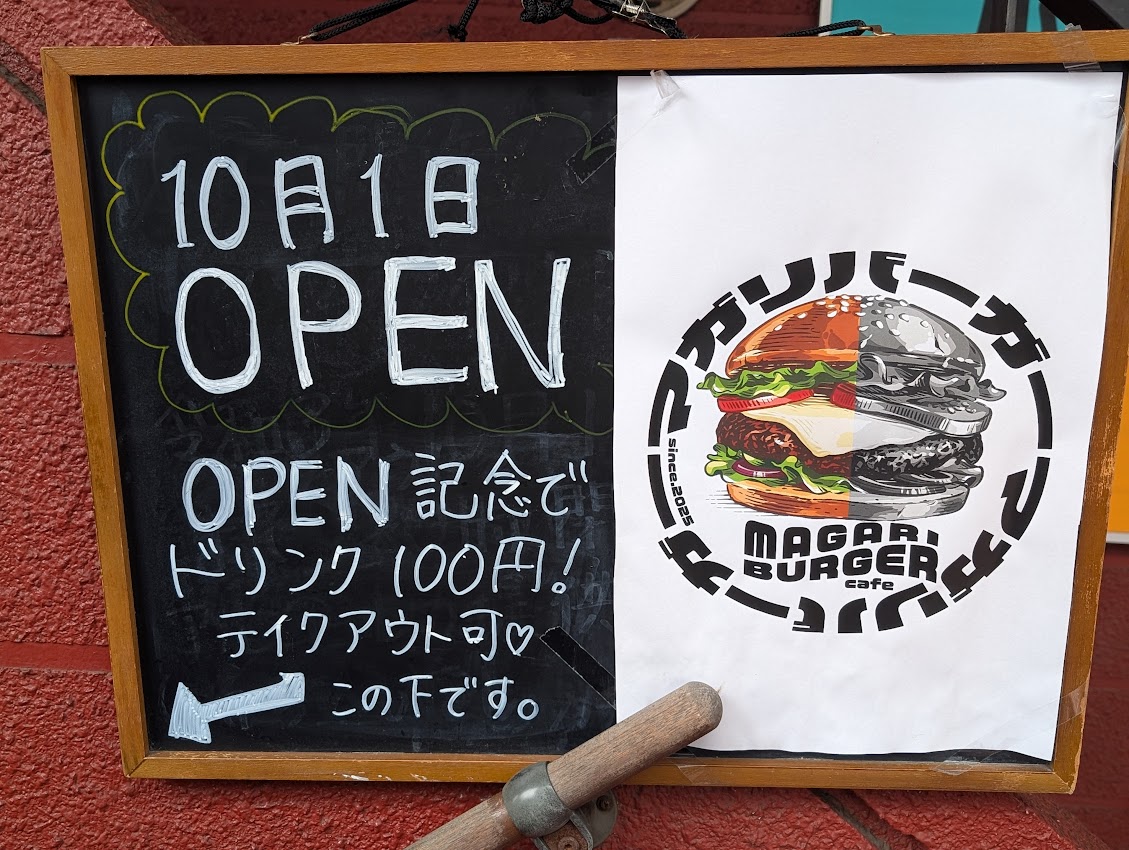 10月1日
OPEN
OPEN 記念で
ドリンク 100円!
テイクアウト可♡
この下です。
マガリバーガー
マガリバーガー
since.2025
MAGARI
BURGER
cafe